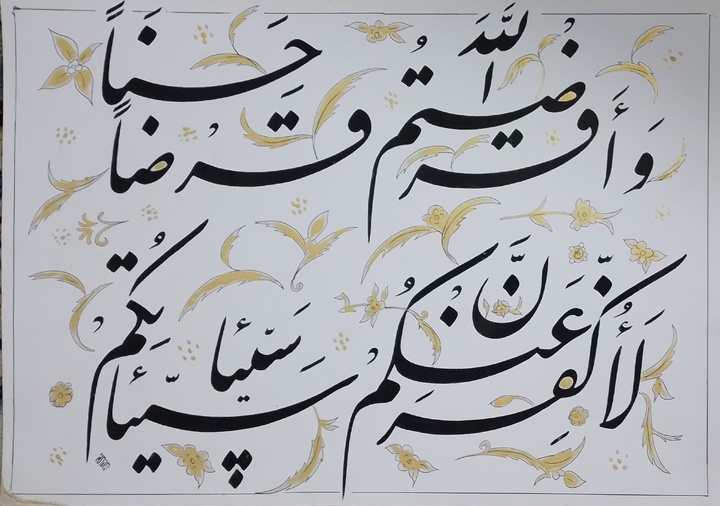 وَأَقرَضتُمُ اللَّهَ قرضاً حَسَناً
لَأُكَفِّرَنَّ عَنكُمْ سَيّئا سيّئاتِكُم